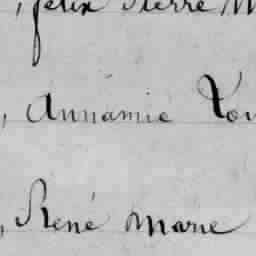 , felix Pierre M
, Annamie Lou
, René Marie